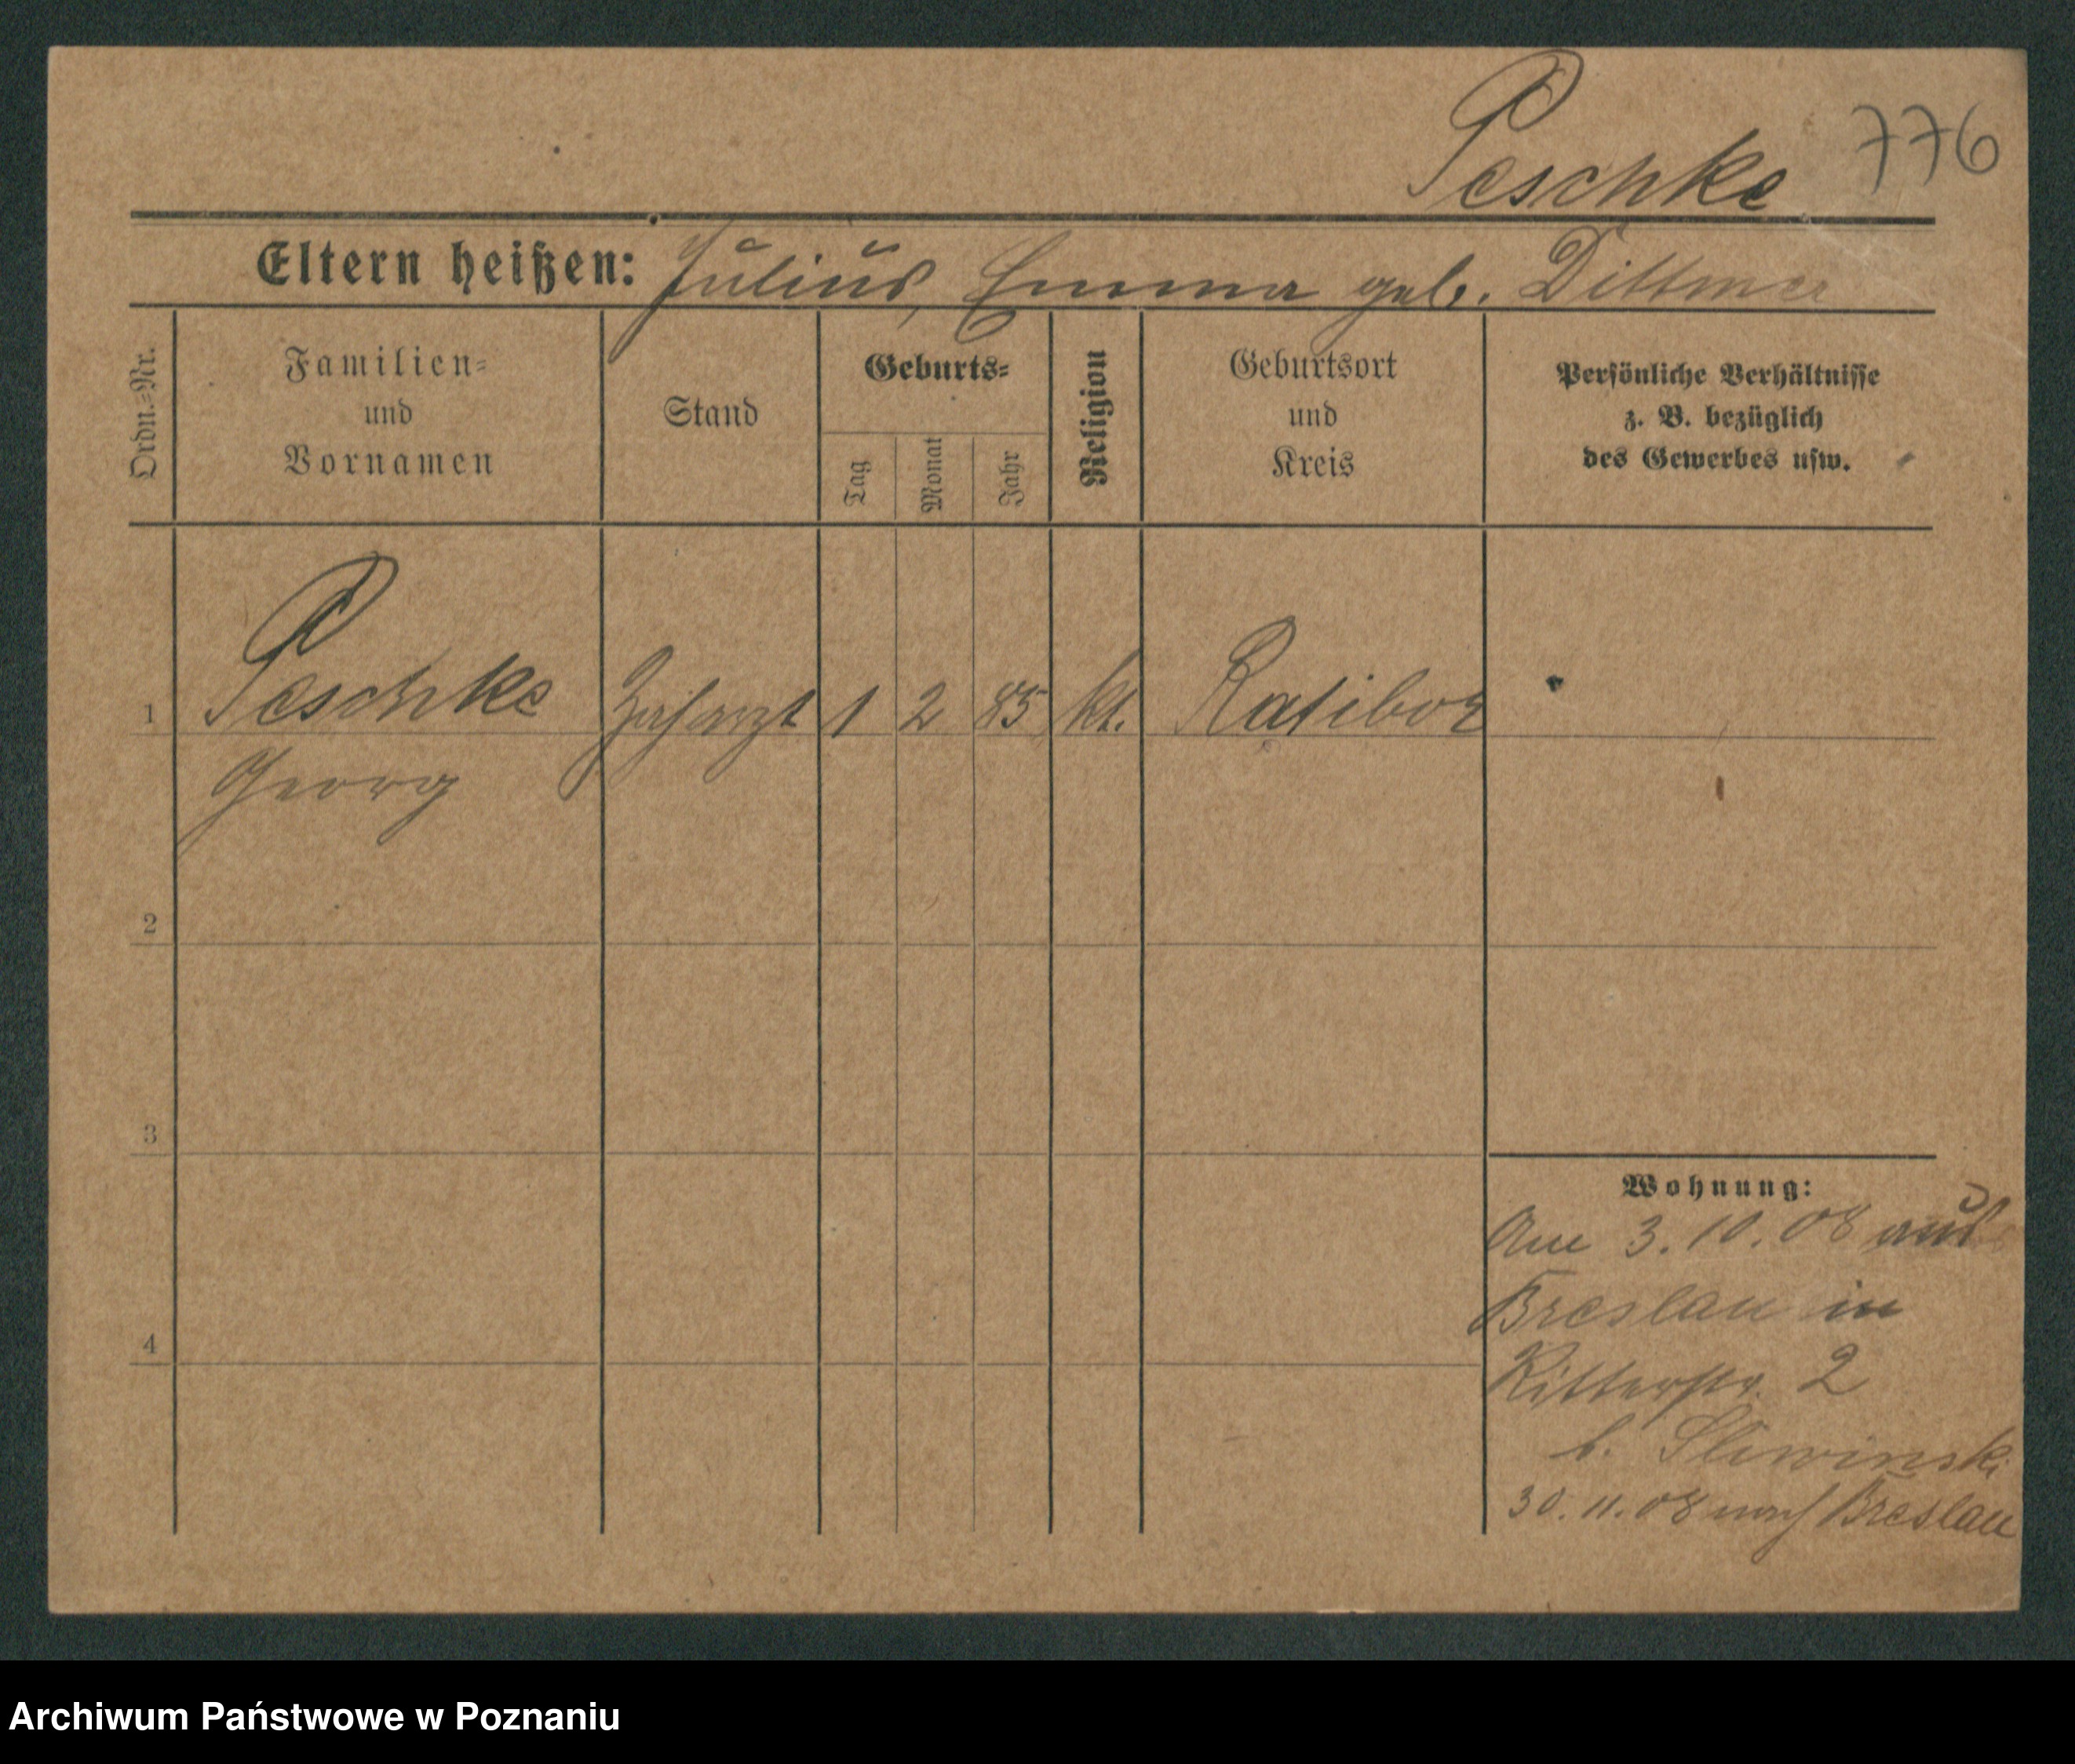 Peschke 776
Eltern heißen: Julius, Emma geb. Dittmer
Ordn.-Nr.
Familien-
und
Vornamen
Stand
Geburts-
Tag
Monat
Jahr
Religion
Geburtsort
und
Kreis
Persönliche Verhältnisse
z. B. bezüglich
des Gewerbes usw.
1 Peschke 1 2 85 kt. Ratibor
Georg
2
3
4
Wohnung:
Am 3.10.08 aus
Breslau in
Ritterstr. 2
b. Sliwinski
30.11.08 nach Breslau
Archiwum Państwowe w Poznaniu